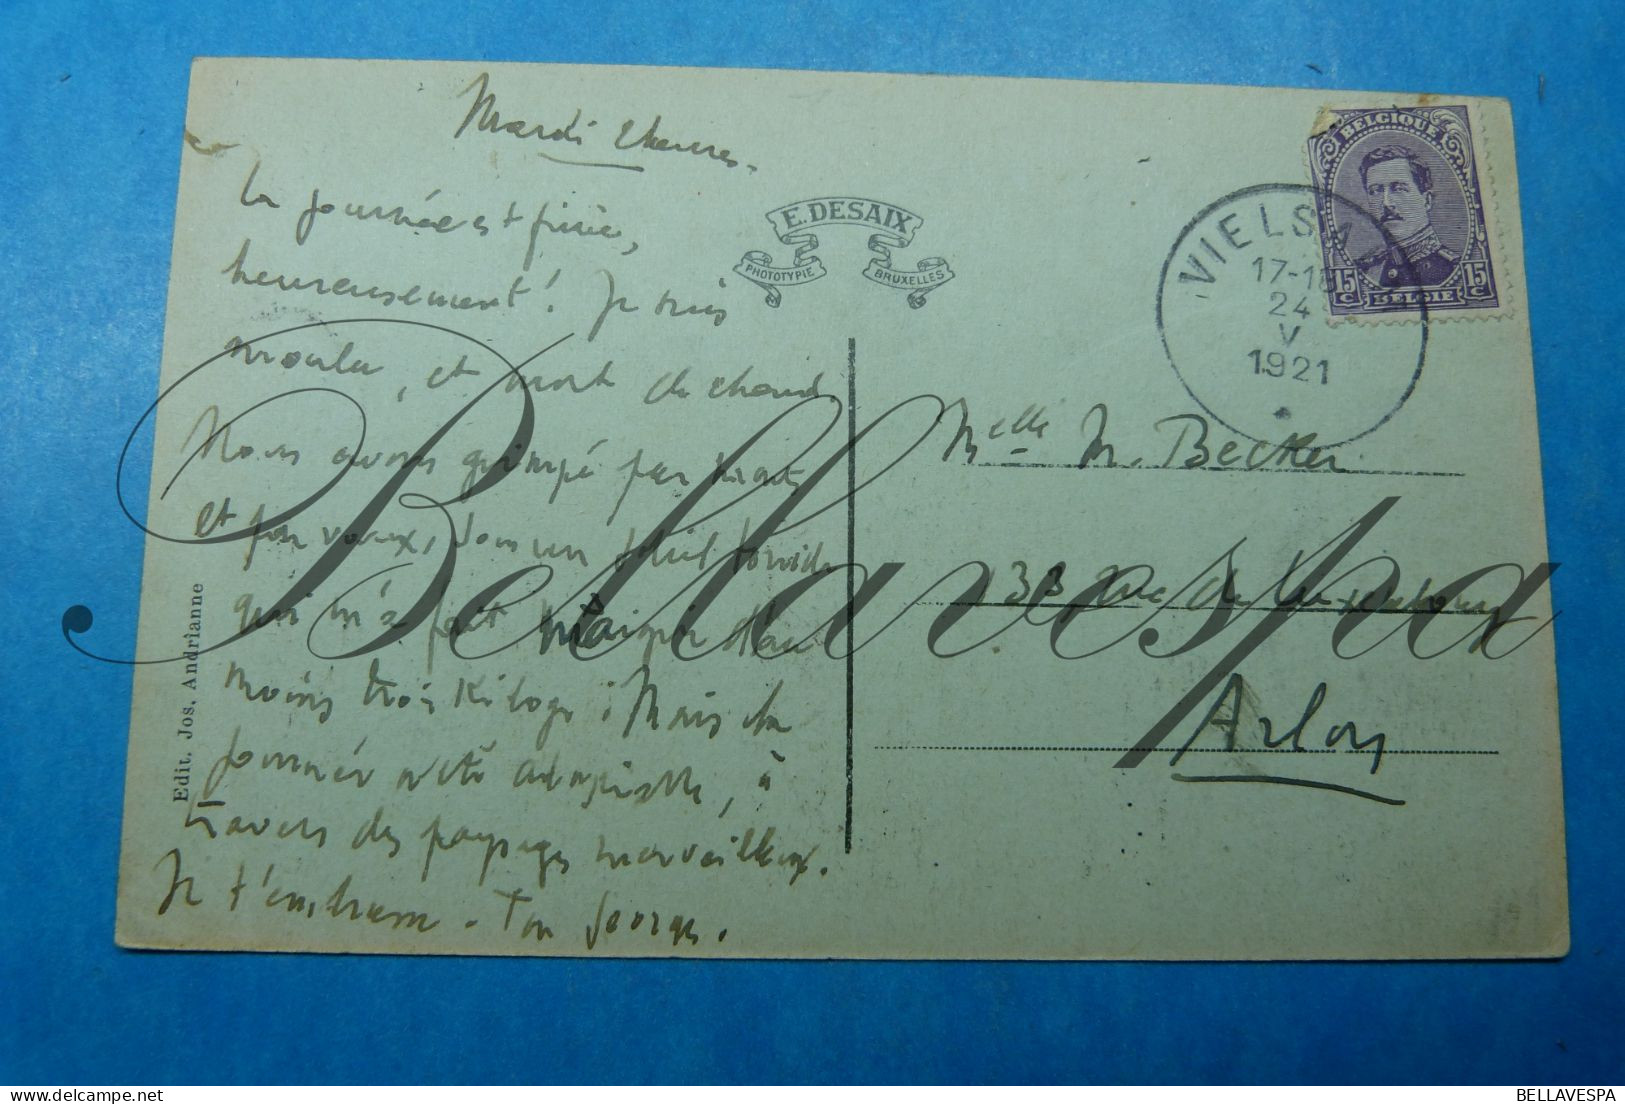 Mardi 2 heures.
La journée est finie,
heureusement! Je suis
moulu, et mort de chaud.
Nous avons grimpé par monts
et par vaux, sous un soleil torride
qui m'a fait maigrir d'au
moins trois kilogs; Mais la
journée a été admirable, à
travers des paysages merveilleux.
Je t'embrasse. Ton Georges.
Edit. Jos. Andrianne
E. DESAIX
PHOTOTYPIE BRUXELLES
BELGIQUE
15c BELGIE 15c
VIELS
17-18
24
V
1921
Melle M. Becker
33 rue de Luxembourg
Arlon
Bellavespa
BELLAVESPA